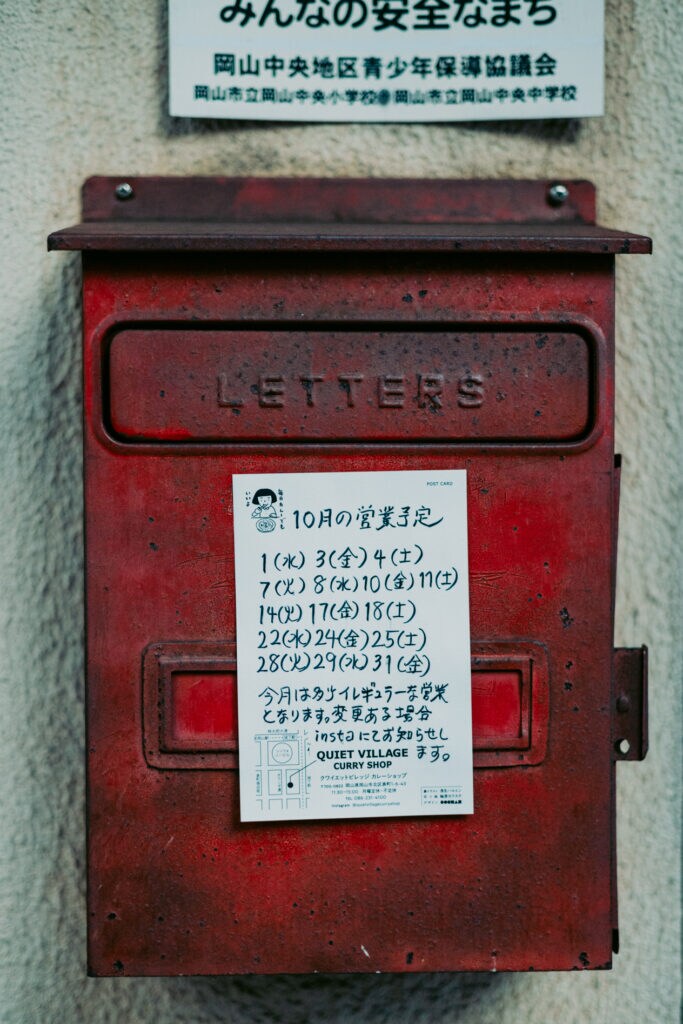 みんなの安全なまち
岡山中央地区青少年保導協議会
岡山市立岡山中央小学校 岡山市立岡山中央中学校
LETTERS
POST CARD
毎日カレーでも
いいよ
10月の営業予定
1(水) 3(金) 4(土)
7(火) 8(水) 10(金) 11(土)
14(火) 17(金) 18(土)
22(水) 24(金) 25(土)
28(火) 29(水) 31(金)
今月は少々イレギュラーな営業
となります。変更ある場合
instaにてお知らせし
ます。
QUIET VILLAGE
CURRY SHOP
クワイエットビレッジ カレーショップ
11:30-15:00 月曜定休・不定休
TEL 086-231-4100